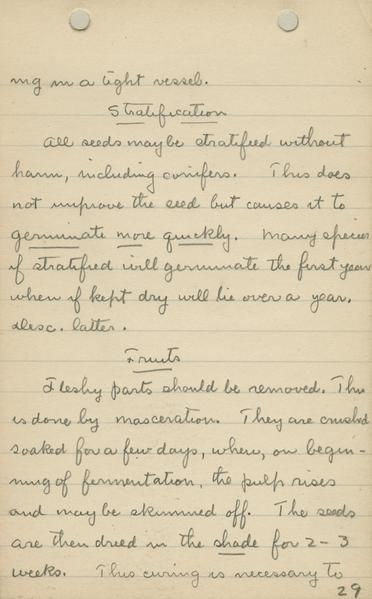 ing in a tight vessel.
Stratification
All seeds may be stratified without
harm, including conifers. This does
not improve the seed but causes it to
germinate more quickly. Many species
if stratified will germinate the first year
when if kept dry will lie over a year.
Desc. latter.
Fruits
Fleshy parts should be removed. This
is done by masceration. They are crushed
soaked for a few days, where, on begin-
ning of fermentation, the pulp rises
and may be skimmed off. The seeds
are then dried in the shade for 2-3
weeks. This curing is necessary to
29